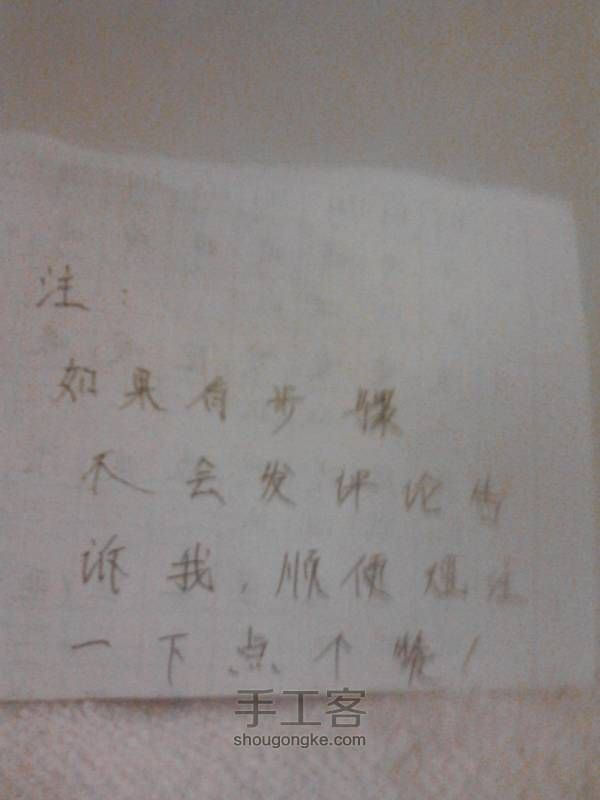 注：
如果有步骤
不会发评论告
诉我，顺便关注
一下点个赞！
手工客
shougongke.com